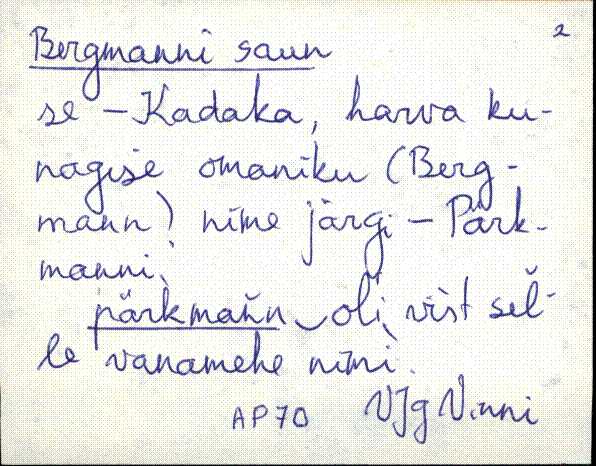 2
Bergmanni saun
se – Kadaka, harva ku-
nagise omaniku (Berg-
mann) nime järgi – Pärk-
manni.
pärkmann oli vist sel-
le vanamehe nimi.
AP70 VJg Vinni